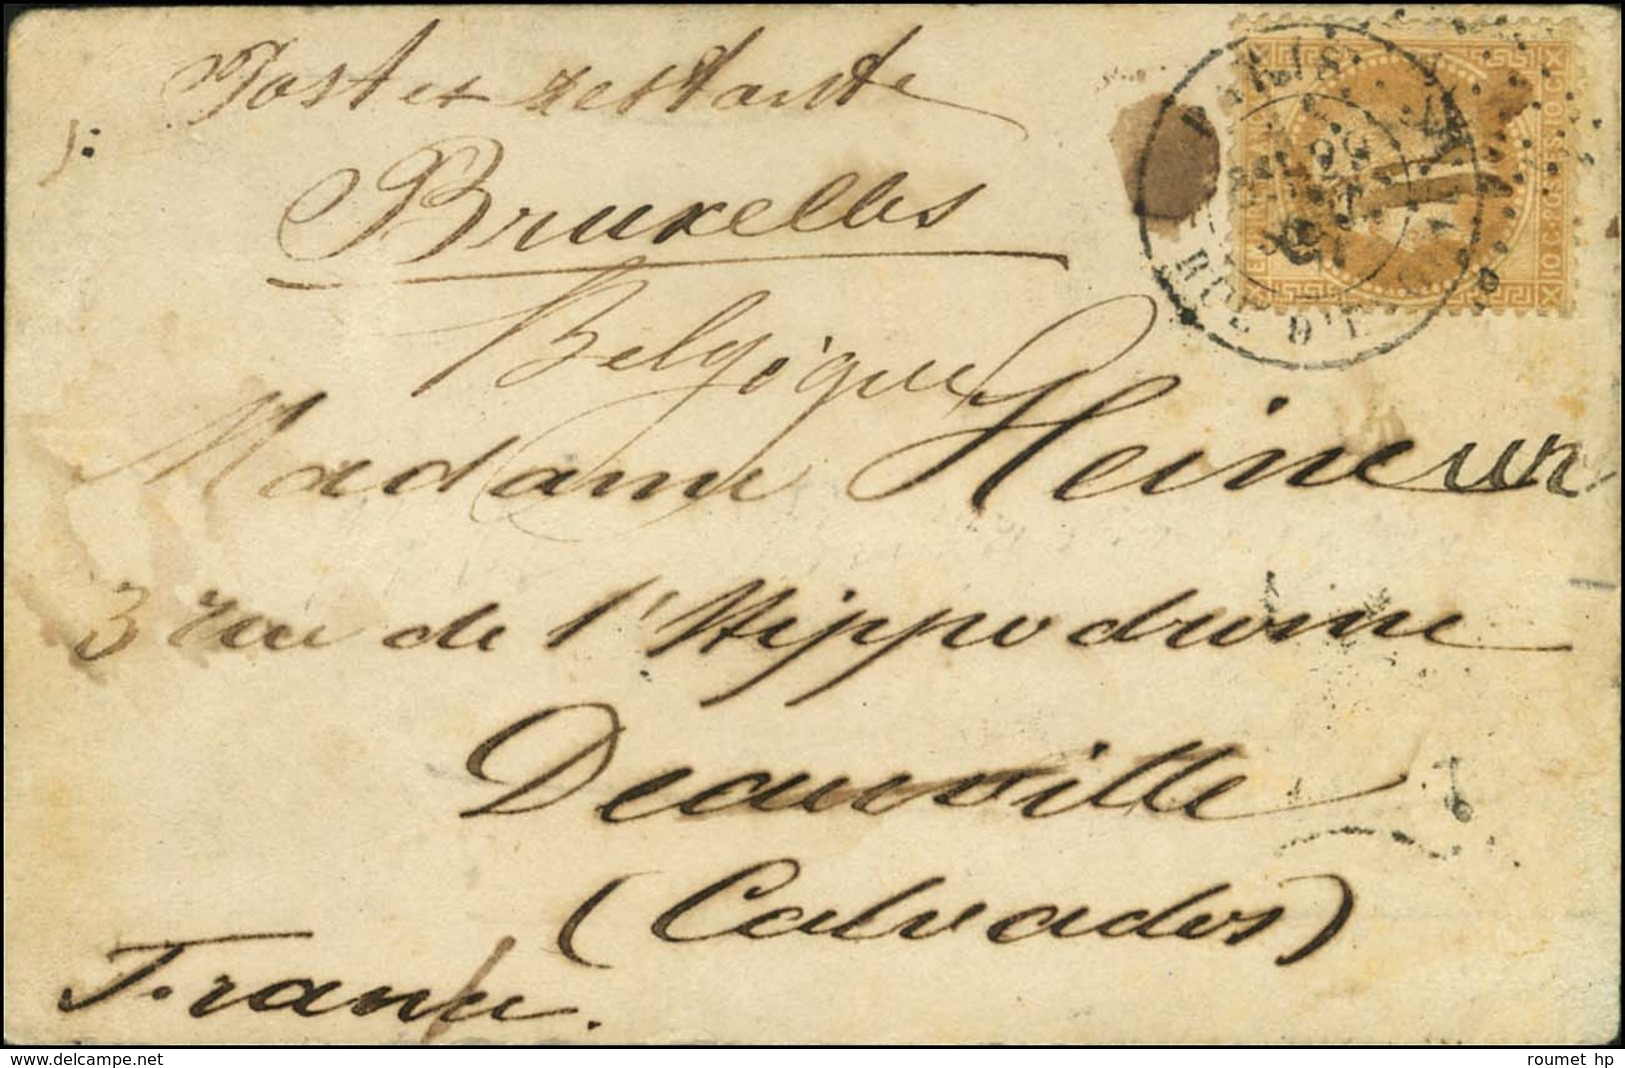 Poste restante
Bruxelles
Belgique
Madame Heineur
3 rue de l'Hippodrome
Deauville
(Calvados)
France.
PARIS
RUE D'
10 C
10 C
www.delcampe.net
roumet hp